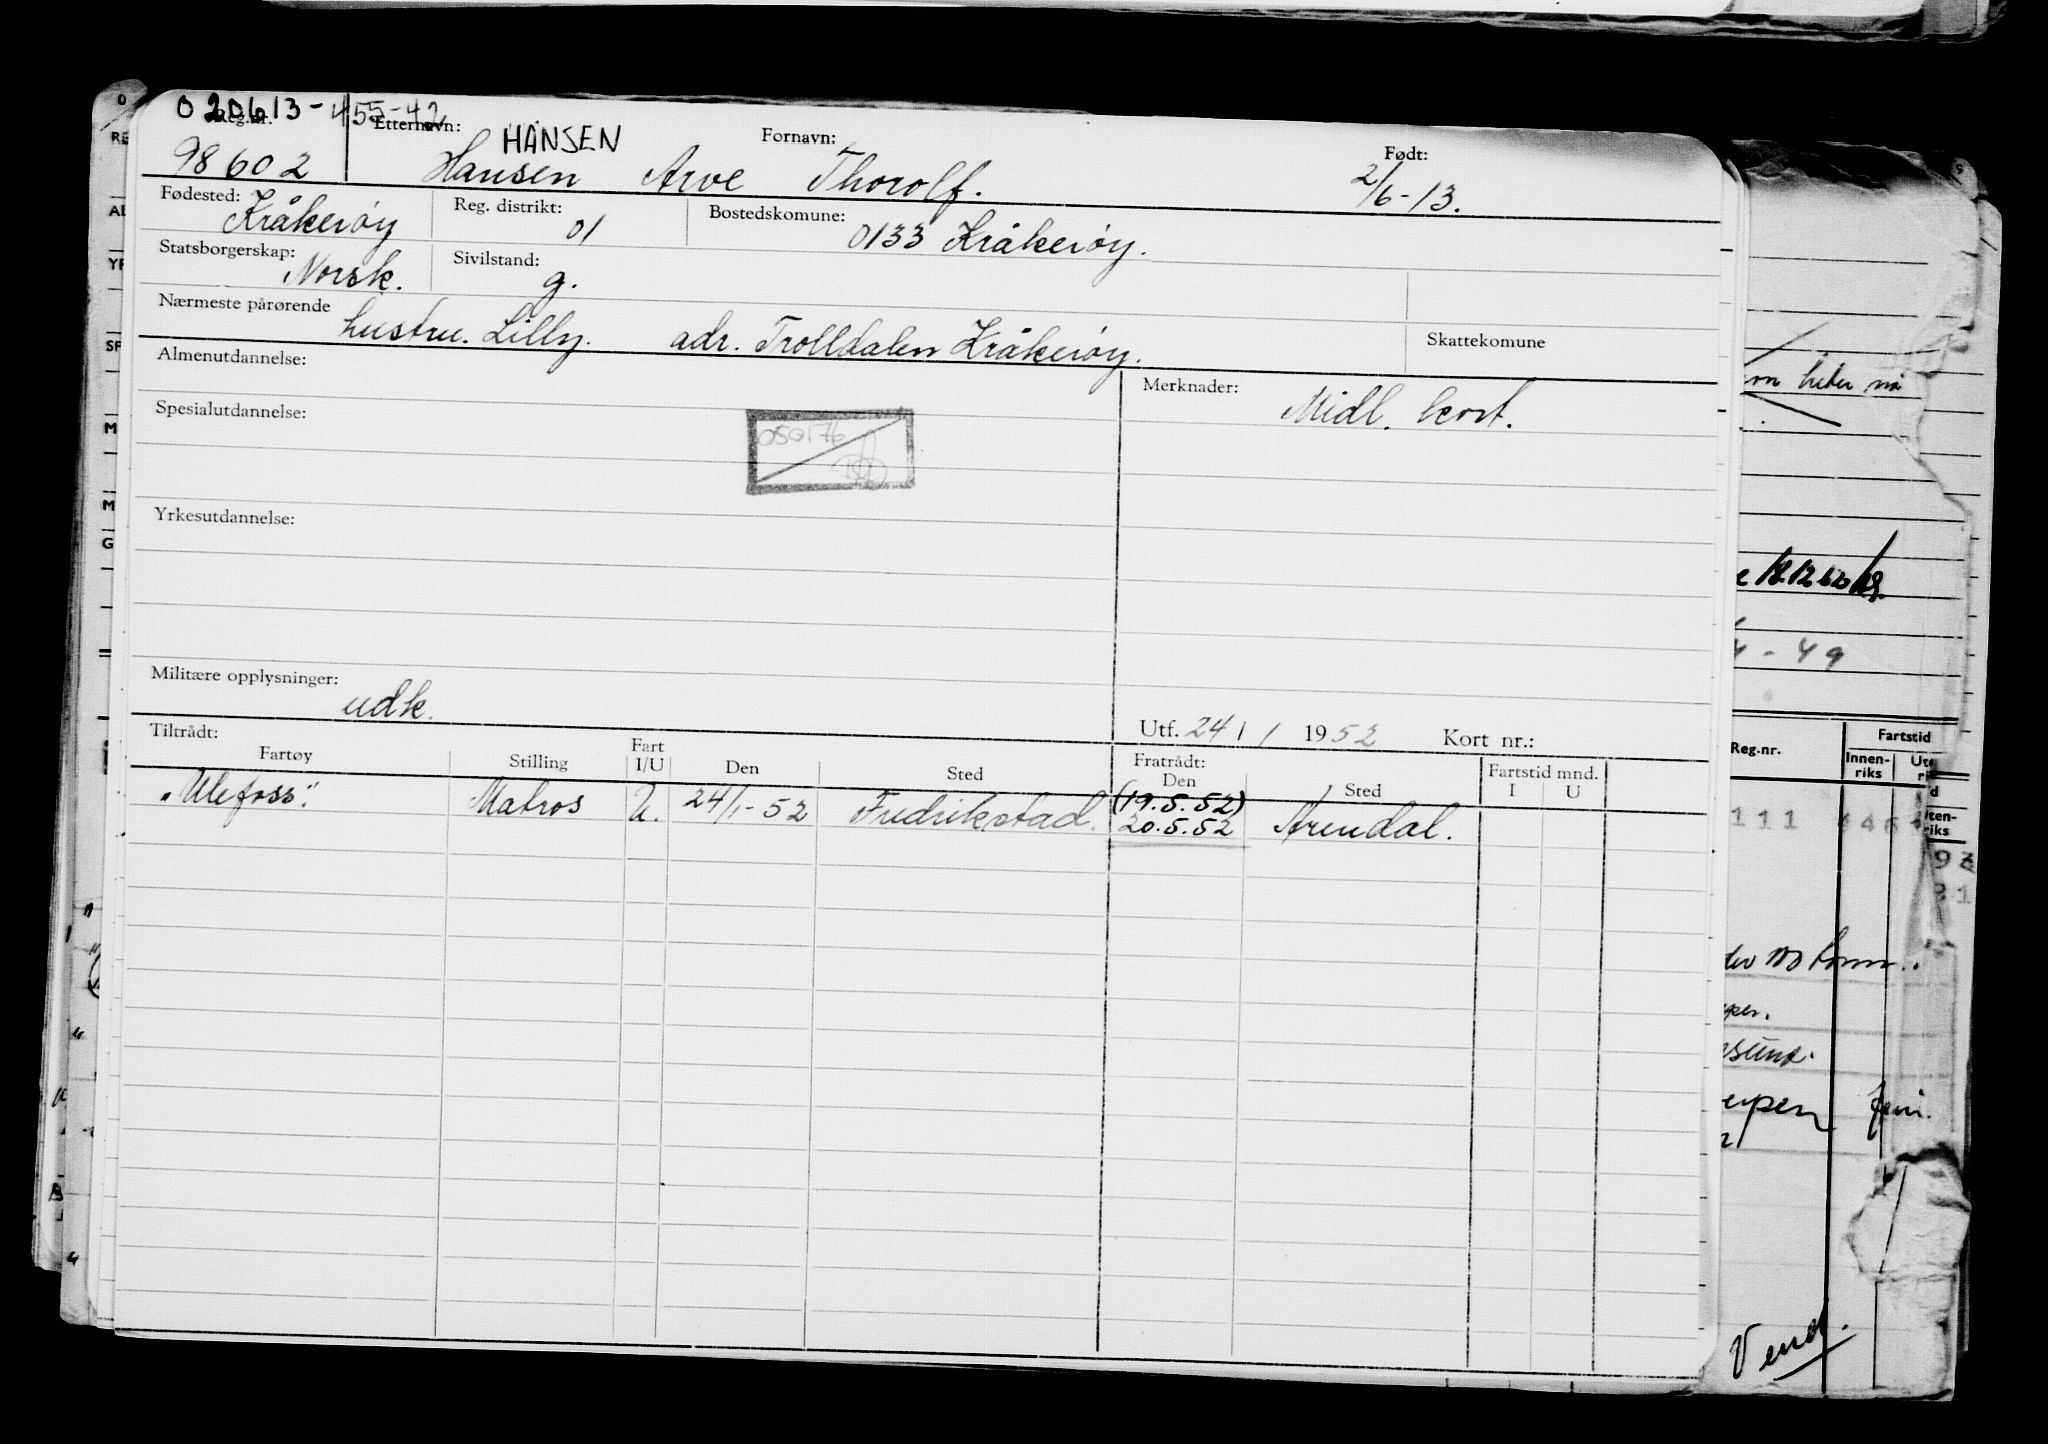 020613-455-42
Reg.nr. Etternavn: HANSEN Fornavn: Født:
98602 Hansen Arve Thorolf. 2/6-13.
Fødested: Kråkerøy Reg. distrikt: 01 Bostedskomune: 0133 Kråkerøy.
Statsborgerskap: Norsk. Sivilstand: g.
Nærmeste pårørende hustru. Lilly. adr. Trolldalen Kråkerøy. Skattekomune
Almenutdannelse: Merknader: Midl. kort.
Spesialutdannelse:
050176
Yrkesutdannelse:
Militære opplysninger: udk.
Utf. 24 / 1 1952 Kort nr.:
Tiltrådt: Fratrådt:
Fartøy Stilling Fart I/U Den Sted Den Sted Fartstid mnd. I U
"Ulefoss". Matros U. 24/1-52 Fredrikstad. (19.5.52) 20.5.52 Arendal.
heter nå
4-49
Reg.nr. Fartstid
Innen-
riks
111 446
Vend.